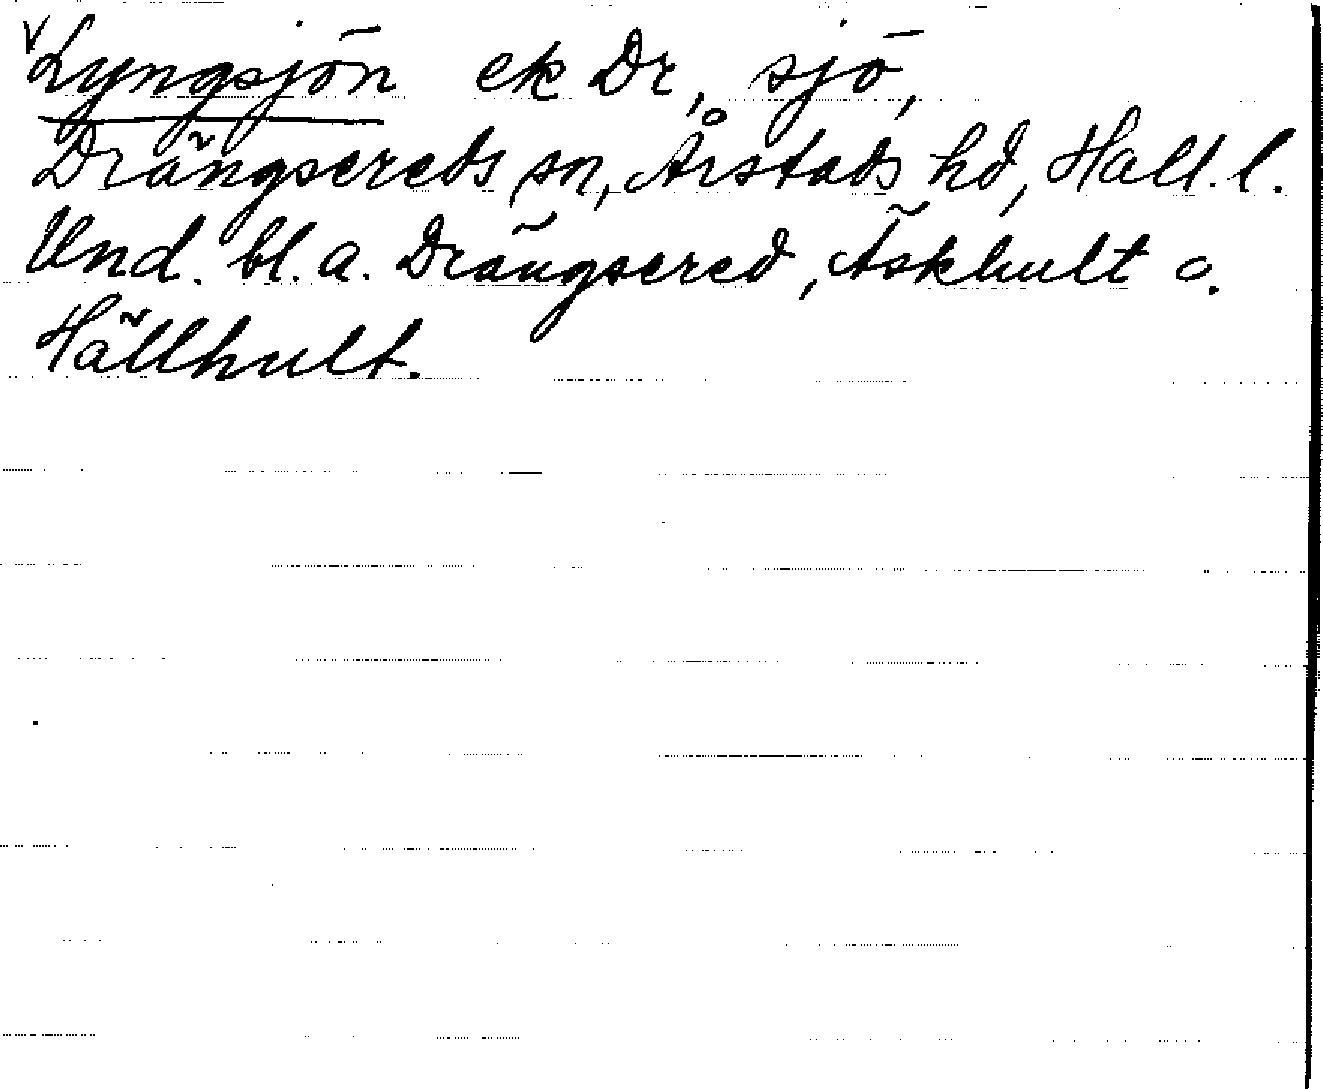 v Lyngsjön ek Dr, sjö,
Drängsereds sn, Årstads hd, Hall. l.
Und. bl. a. Drängsered, Äskhult o.
Hällhult.